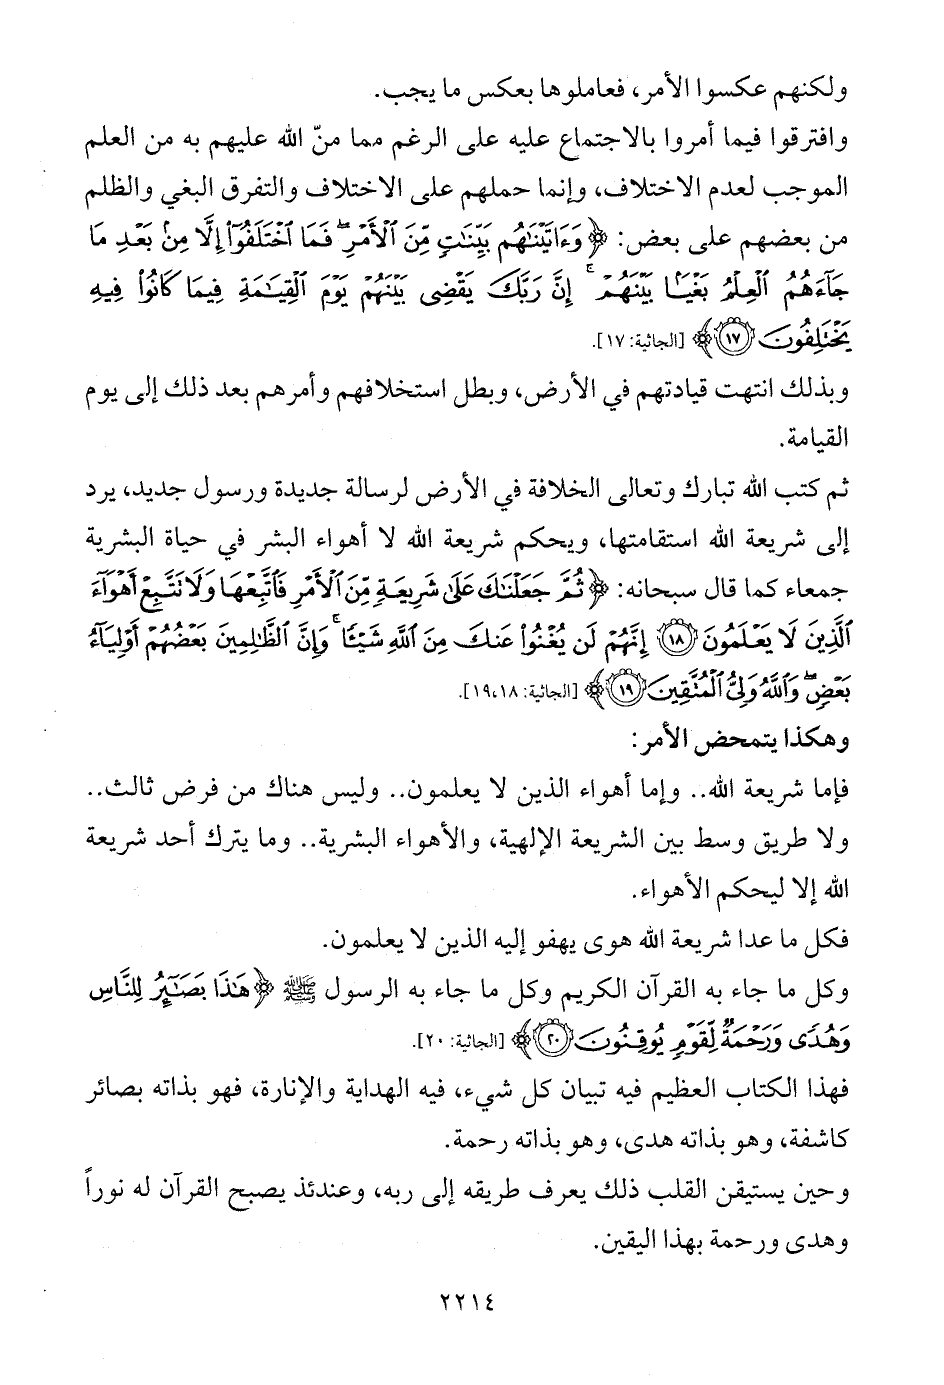 ولكنهم عكسوا الأمر، فعاملوها بعكس ما يجب.
وافترقوا فيما أمروا بالاجتماع عليه على الرغم مما منّ الله عليهم به من العلم
الموجب لعدم الاختلاف، وإنما حملهم على الاختلاف والتفرق البغي والظلم
من بعضهم على بعض: ﴿وَءَاتَيْنَٰهُم بَيِّنَٰتٍ مِّنَ ٱلْأَمْرِ ۖ فَمَا ٱخْتَلَفُوٓا۟ إِلَّا مِنۢ بَعْدِ مَا
جَآءَهُمُ ٱلْعِلْمُ بَغْيًۢا بَيْنَهُمْ ۚ إِنَّ رَبَّكَ يَقْضِى بَيْنَهُمْ يَوْمَ ٱلْقِيَٰمَةِ فِيمَا كَانُوا۟ فِيهِ
يَخْتَلِفُونَ ١٧﴾ [الجاثية: ١٧].
وبذلك انتهت قيادتهم في الأرض، وبطل استخلافهم وأمرهم بعد ذلك إلى يوم
القيامة.
ثم كتب الله تبارك وتعالى الخلافة في الأرض لرسالة جديدة ورسول جديد، يرد
إلى شريعة الله استقامتها، ويحكم شريعة الله لا أهواء البشر في حياة البشرية
جمعاء كما قال سبحانه: ﴿ثُمَّ جَعَلْنَٰكَ عَلَىٰ شَرِيعَةٍ مِّنَ ٱلْأَمْرِ فَٱتَّبِعْهَا وَلَا تَتَّبِعْ أَهْوَآءَ
ٱلَّذِينَ لَا يَعْلَمُونَ ١٨ إِنَّهُمْ لَن يُغْنُوا۟ عَنكَ مِنَ ٱللَّهِ شَيْـًٔا ۚ وَإِنَّ ٱلظَّٰلِمِينَ بَعْضُهُمْ أَوْلِيَآءُ
بَعْضٍ ۖ وَٱللَّهُ وَلِىُّ ٱلْمُتَّقِينَ ١٩﴾ [الجاثية: ١٩،١٨].
وهكذا يتمحض الأمر:
فإما شريعة الله.. وإما أهواء الذين لا يعلمون.. وليس هناك من فرض ثالث..
ولا طريق وسط بين الشريعة الإلهية، والأهواء البشرية.. وما يترك أحد شريعة
الله إلا ليحكم الأهواء.
فكل ما عدا شريعة الله هوى يهفو إليه الذين لا يعلمون.
وكل ما جاء به القرآن الكريم وكل ما جاء به الرسول ﷺ ﴿هَٰذَا بَصَٰٓئِرُ لِلنَّاسِ
وَهُدًى وَرَحْمَةٌ لِّقَوْمٍ يُوقِنُونَ ٢٠﴾ [الجاثية: ٢٠].
فهذا الكتاب العظيم فيه تبيان كل شيء، فيه الهداية والإنارة، فهو بذاته بصائر
كاشفة، وهو بذاته هدى، وهو بذاته رحمة.
وحين يستيقن القلب ذلك يعرف طريقه إلى ربه، وعندئذ يصبح القرآن له نوراً
وهدى ورحمة بهذا اليقين.
٢٢١٤